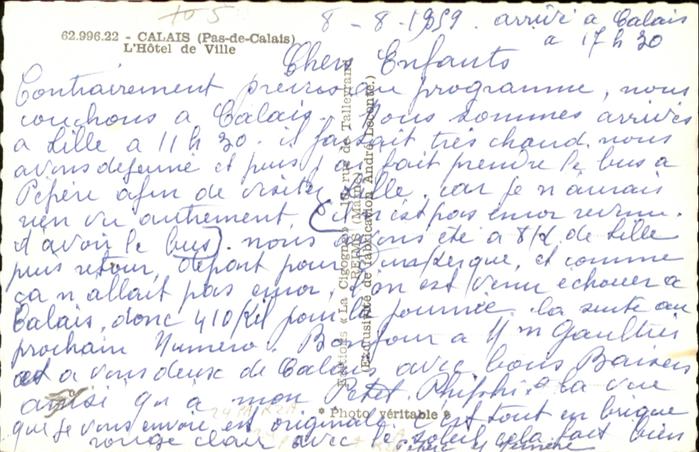 8-8-1959. arrivé a Calais
a 17h30
62.996.22 - CALAIS (Pas-de-Calais)
L'Hôtel de Ville
Chers Enfants
Contrairement prevus au programme, nous
couchons a Calais. Nous sommes arrivés
a Lille a 11h30. il faisait très chaud, nous
avons dejeuné et puis j'ai fait prendre le bus a
Pépère afin de visiter Lille. car je n'aurais
rien vu autrement, (il n'est pas encor revenu.
d'avoir le bus). nous avons été a 8K de Lille
puis retour, depart pour Dunkerque et comme
ça n'allait pas encor, l'on est venu échouer a
Calais, donc 410 Kil pour la journée. la suite au
prochain Numero. Bonjour a Mm Gaultier
et a vous deux de Calais, avec bons Baisers
ainsi qu'a mon Petit la vue
que je vous envoie est originale c'est tout en brique
rouge clair avec le soleil cela fait bien
Pépère et Mémère
Editions « La Cigogne » rue de Talleyrand
REIMS (Marne)
(Exclusivité de fabrication André Leconte.)
* Photo véritable *